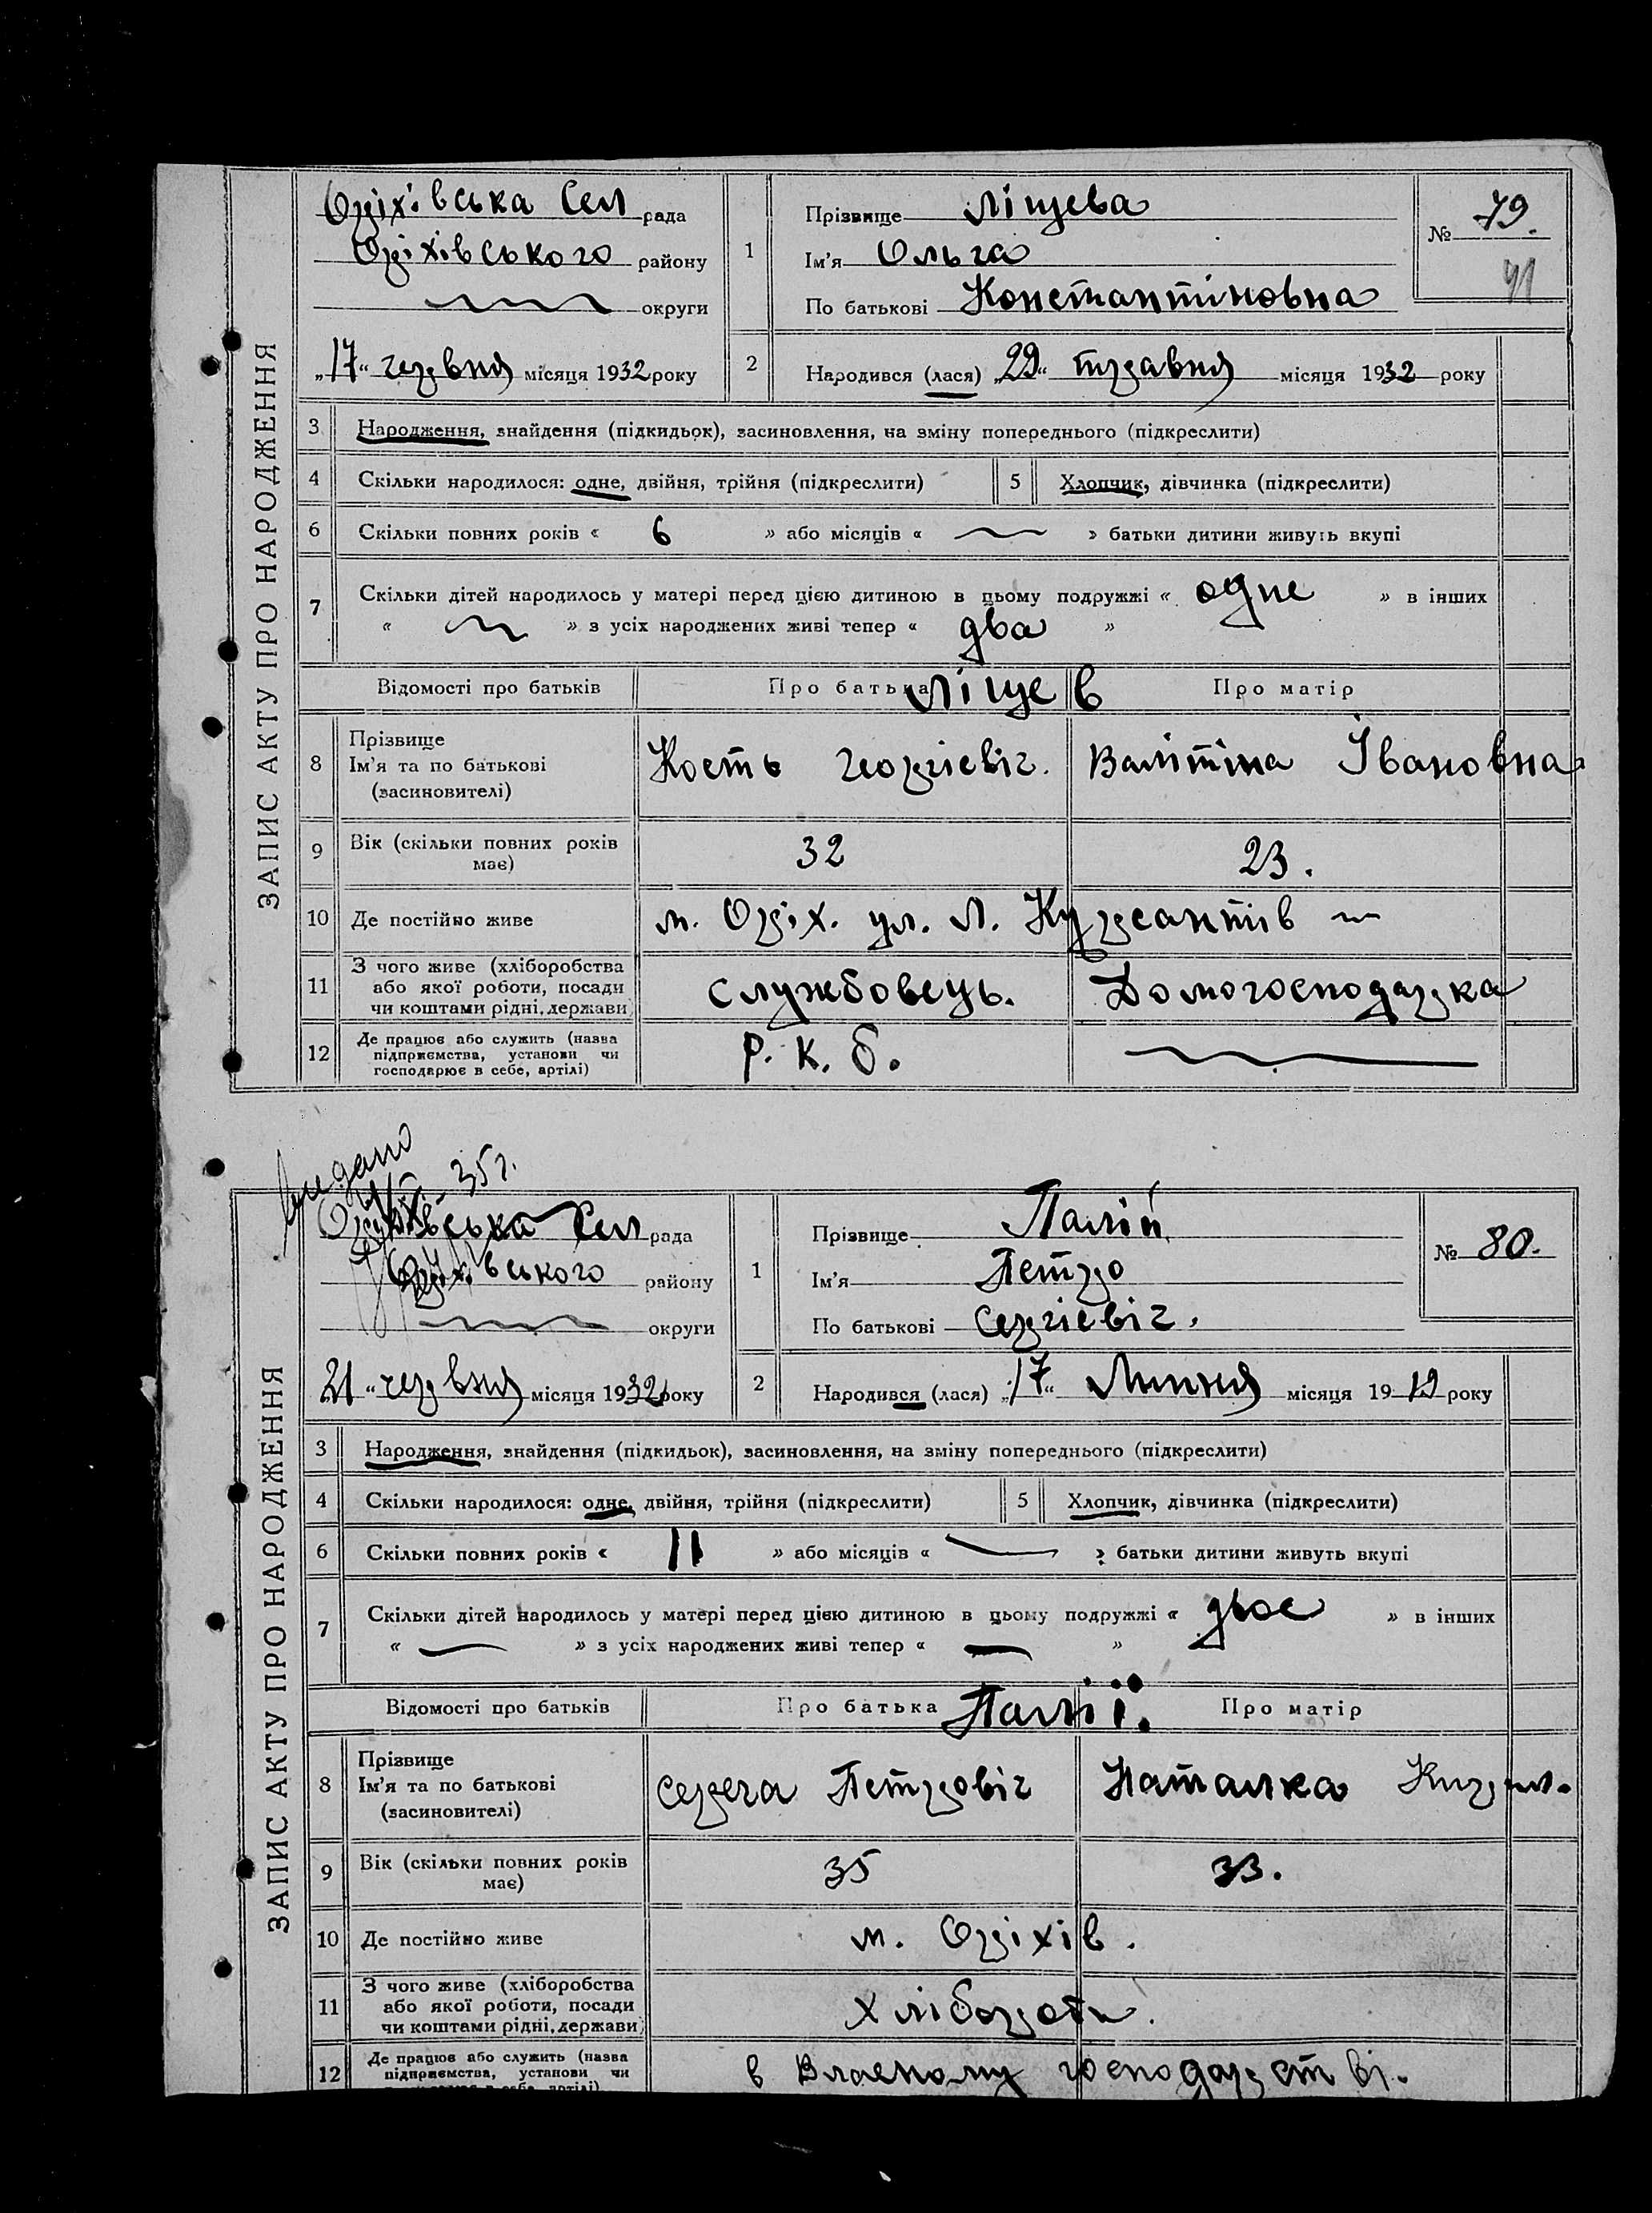 ЗАПИС АКТУ ПРО НАРОДЖЕННЯ
Оріхівська Сел рада
Оріхівського району
округи
„17“ червня місяця 1932 року
1 Прізвище Ліщева
Ім'я Ольга
По батькові Константіновна
№ 79.
41
2 Народився (лася) „29“ травня місяця 1932 року
3 Народження, знайдення (підкидьок), засиновлення, на зміну попереднього (підкреслити)
4 Скільки народилося: одне, двійня, трійня (підкреслити) 5 Хлопчик, дівчинка (підкреслити)
6 Скільки повних років « 6 » або місяців « » батьки дитини живуть вкупі
7 Скільки дітей народилось у матері перед цією дитиною в цьому подружжі « одне » в інших
« » з усіх народжених живі тепер « два »
Відомості про батьків Про батька Ліщев Про матір
8 Прізвище
Ім'я та по батькові
(засиновителі)
Кость Георгієвіч. Валітіна Івановна
9 Вік (скільки повних років
має)
32 23.
10 Де постійно живе м. Оріх. ул. Л. Курсантів
11 З чого живе (хліборобства
або якої роботи, посади
чи коштами рідні, держави)
службовець. Домогосподарка
12 Де працює або служить (назва
підприємства, установи чи
господарює в себе, артілі)
Р. К. б.
видано
35 г.
ЗАПИС АКТУ ПРО НАРОДЖЕННЯ
Оріхівська Сел рада
Оріхівського району
округи
21 “ червня місяця 1932 року
1 Прізвище Палій
Ім'я Петро
По батькові Сергієвіч.
№ 80.
2 Народився (лася) „17“ Липня місяця 1919 року
3 Народження, знайдення (підкидьок), засиновлення, на зміну попереднього (підкреслити)
4 Скільки народилося: одне, двійня, трійня (підкреслити) 5 Хлопчик, дівчинка (підкреслити)
6 Скільки повних років « 11 » або місяців « » батьки дитини живуть вкупі
7 Скільки дітей народилось у матері перед цією дитиною в цьому подружжі « двоє » в інших
« » з усіх народжених живі тепер « »
Відомості про батьків Про батька Палії. Про матір
8 Прізвище
Ім'я та по батькові
(засиновителі)
Серега Петровіч Наталка Кирил.
9 Вік (скільки повних років
має)
35 33.
10 Де постійно живе м. Оріхів.
11 З чого живе (хліборобства
або якої роботи, посади
чи коштами рідні, держави)
хлібороби.
12 Де працює або служить (назва
підприємства, установи чи
в Власному господарстві.